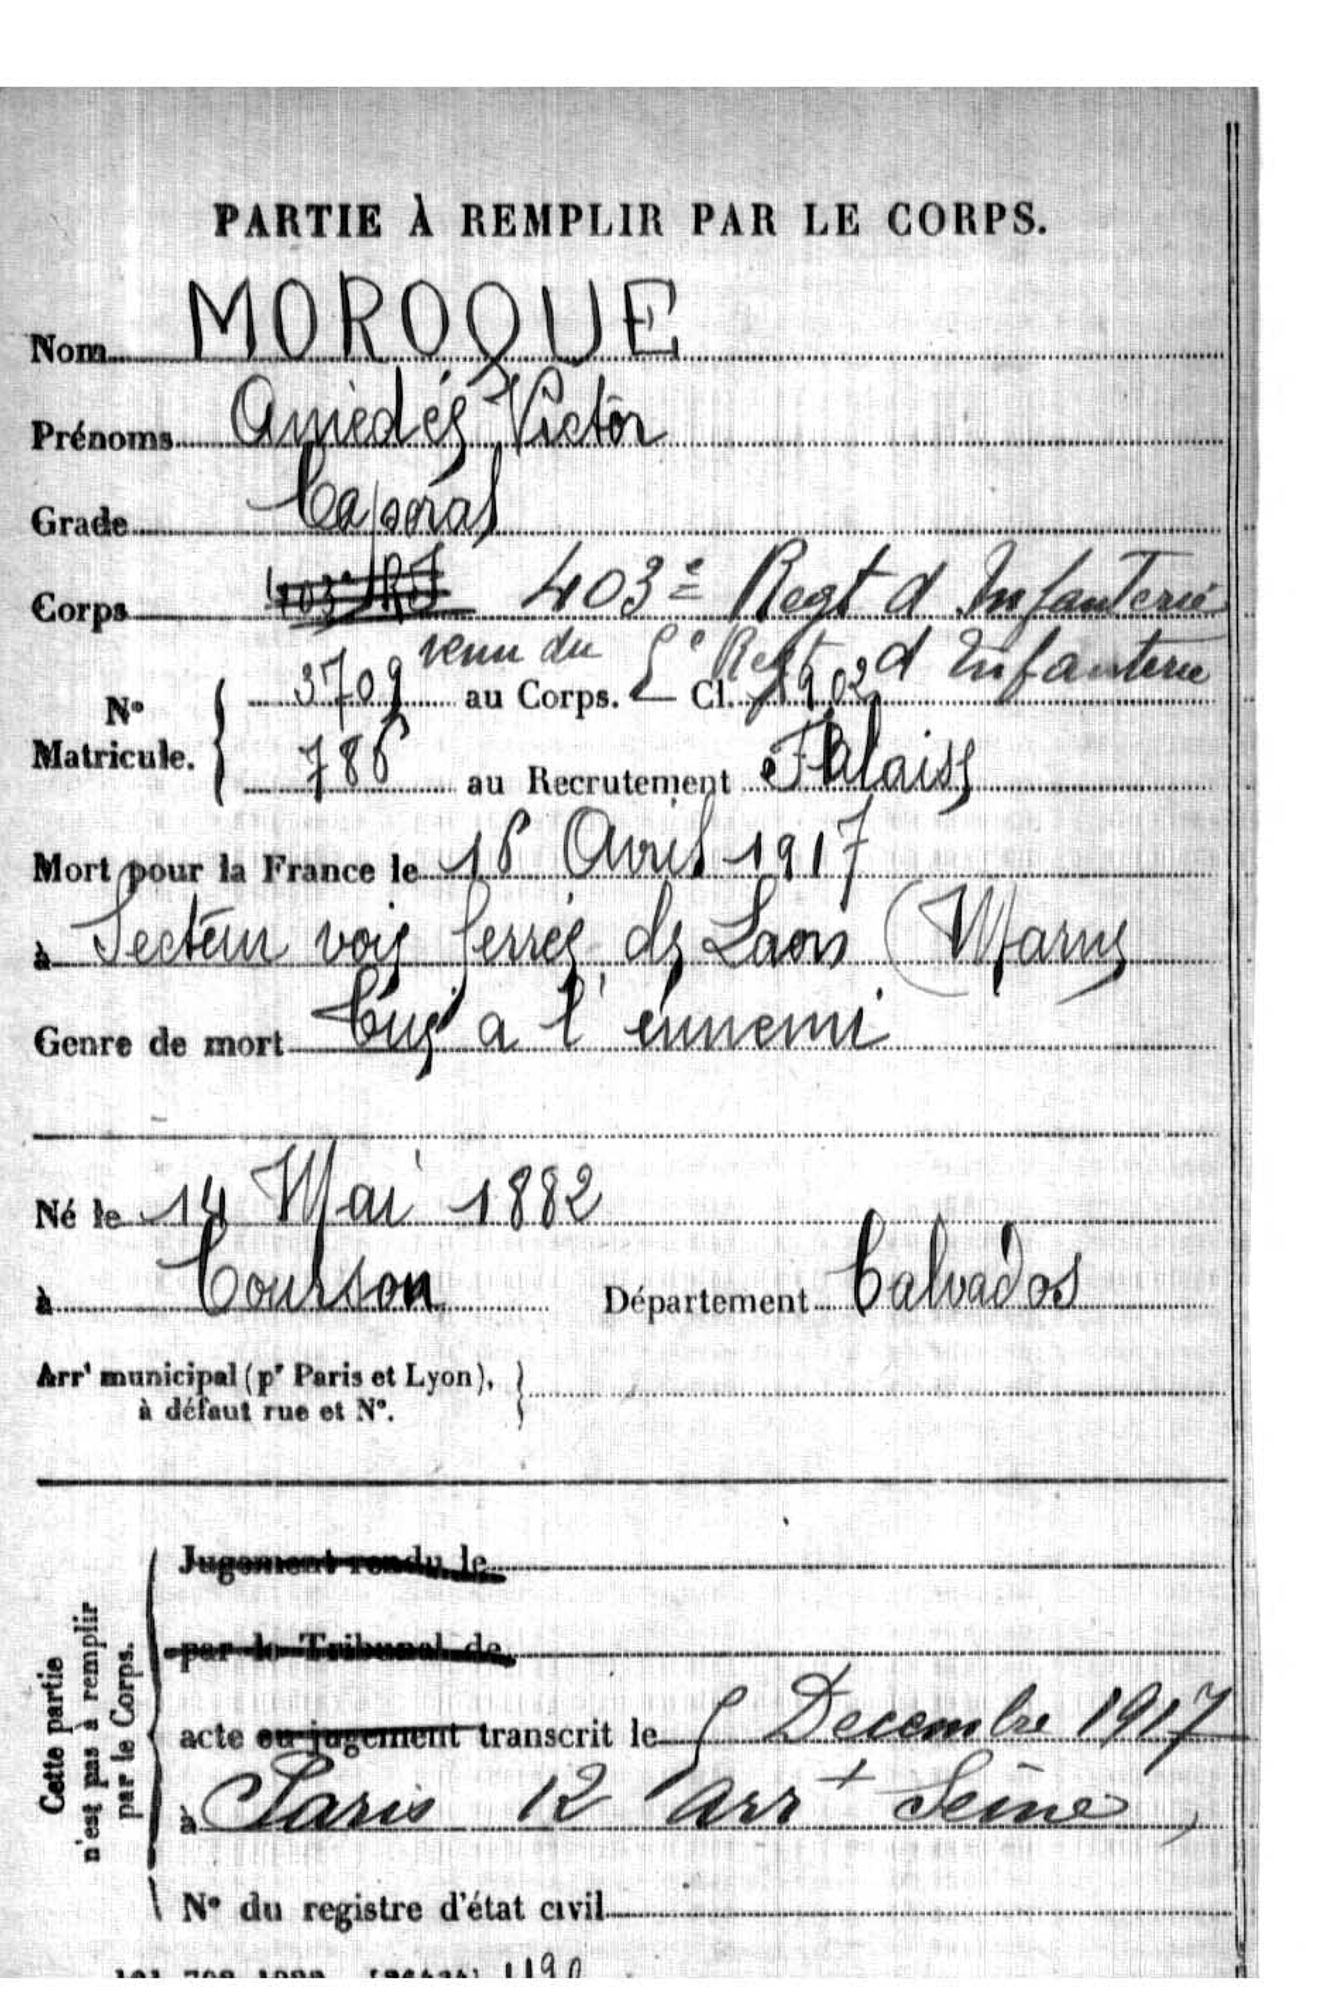 PARTIE À REMPLIR PAR LE CORPS.
Nom MOROQUE
Prénoms Amédée Victor
Grade Caporal
Corps 403e RI 403e Regt d Infanterie
venu du 5e Regt d Infanterie
3709 au Corps. Cl. 1902
N° Matricule.
786 au Recrutement Falaise
Mort pour la France le 16 Avril 1917
à Secteur voie ferrée de Laon (Marne
Genre de mort Tué a l'ennemi
Né le 14 Mai 1882
à Courson Département Calvados
Arrt municipal (pr Paris et Lyon),
à défaut rue et N°.
Cette partie
n'est pas à remplir
par le Corps.
Jugement rendu le
par le Tribunal de
acte ou jugement transcrit le 5 Decembre 1917
à Paris 12 arrt Seine
N° du registre d'état civil